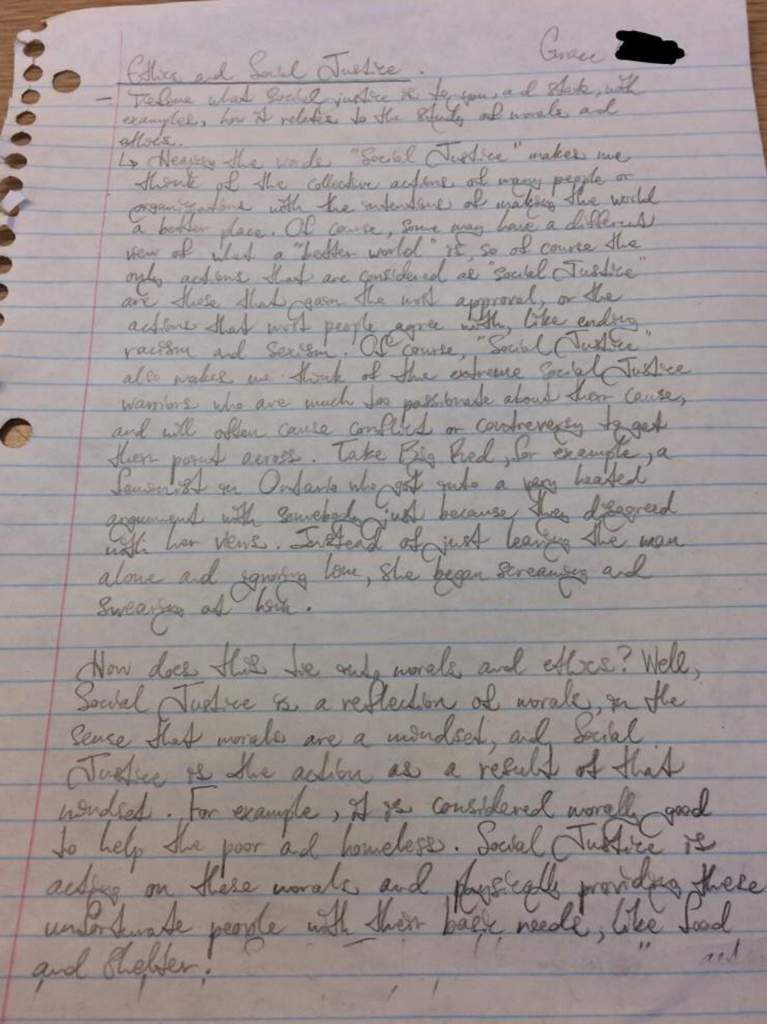 Grace
Ethics and Social Justice.
- Define what social justice is to you, and state, with
examples, how it relates to the study of morals and
ethics.
↳ Hearing the words "Social Justice" makes me
think of the collective actions of many people or
organizations with the intentions of making the world
a better place. Of course, some may have a different
view of what a "better world" is, so of course the
only actions that are considered as "Social Justice"
are those that gain the most approval, or the
actions that most people agree with, like ending
racism and sexism. Of course, "Social Justice"
also makes me think of the extreme Social Justice
warriors who are much too passionate about their cause,
and will often cause conflict or controversy to get
their point across. Take Big Red, for example, a
feminist in Ontario who got into a very heated
argument with somebody just because they disagreed
with her views. Instead of just leaving the man
alone and ignoring him, she began screaming and
swearing at him.
How does this tie into morals and ethics? Well,
Social Justice is a reflection of morals, in the
sense that morals are a mindset, and Social
Justice is the action as a result of that
mindset. For example, it is considered morally good
to help the poor and homeless. Social Justice is
acting on these morals and physically providing these
unfortunate people with their basic needs, like food
and shelter.